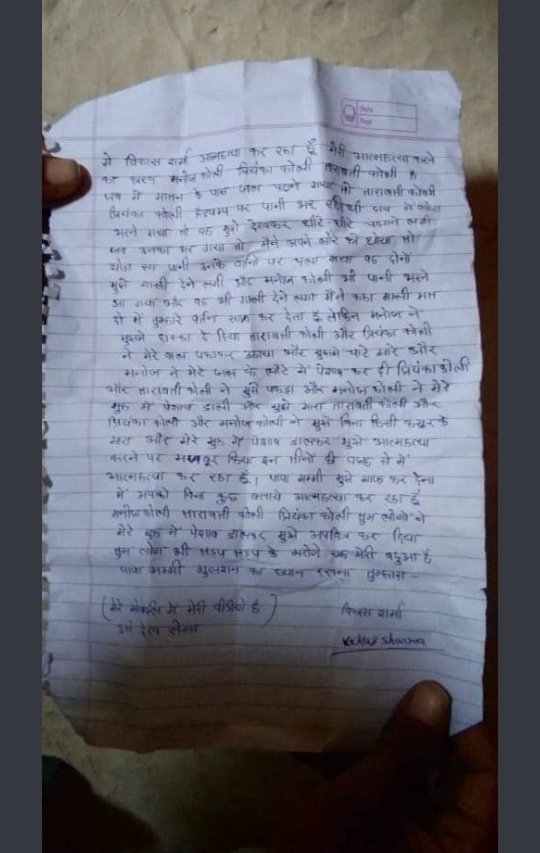 Date
Page
मैं विकास शर्मा आत्महत्या कर रहा हूँ मेरी आत्महत्या करने
का कारण मनोज कोली प्रियंका कोली तारावती कोली है
जब मैं के पास जल गया तो तारावती कोली
प्रियंका कोली पर पानी भर रही थी जब मैं लोटा
भरने गया तो वह मुझे देखकर धीरे धीरे लगी
जब उनका भर गया तो मैंने अपने लोटे को धोया तो
थोडा सा पानी उनके बर्तनो पर चला गया वह दोनो
मुझे गाली देने लगी और मनोज कोली भी पानी भरने
आ गया और वह भी गाली देने लगा मैंने कहा गाली मत
दो मैं तुम्हारे बर्तन साफ कर देता हूँ लेकिन मनोज ने
मुझमे धक्का दे दिया तारावती कोली और प्रियंका कोली
ने मेरे बाल पकडकर और मुझमे चाटे मारे और
मनोज ने मेरे जल के लोटे में पेशाब कर दी प्रियंका कोली
और तारावती कोली ने मुझे पकडा और मनोज कोली ने मेरे
मुह में पेशाब डाली और मुझे मारा तारावती कोली और
प्रियंका कोली और मनोज कोली ने मुझे बिना किसी कसूर के
मारा और मेरे मुह में पेशाब डालकर मुझे आत्महत्या
करने पर मजबूर किया इन तीनों की वजह से मैं
आत्महत्या कर रहा हूँ, पापा मम्मी मुझे माफ कर देना
मैं आपको बिना कुछ बताये आत्महत्या कर रहा हूँ
मनोज कोली तारावती कोली प्रियंका कोली तुम लोगो ने
मेरे मुह में पेशाब डालकर मुझे अपवित्र कर दिया
तुम लोग भी तडप तडप के मरोगे यह मेरी बद्दुआ है
पापा मम्मी गुलशन का ध्यान रखना तुम्हारा -
(मेरे मोबाईल में मेरी वीडियो है)
उसे देख लेना
विकास शर्मा
Vikas Sharma